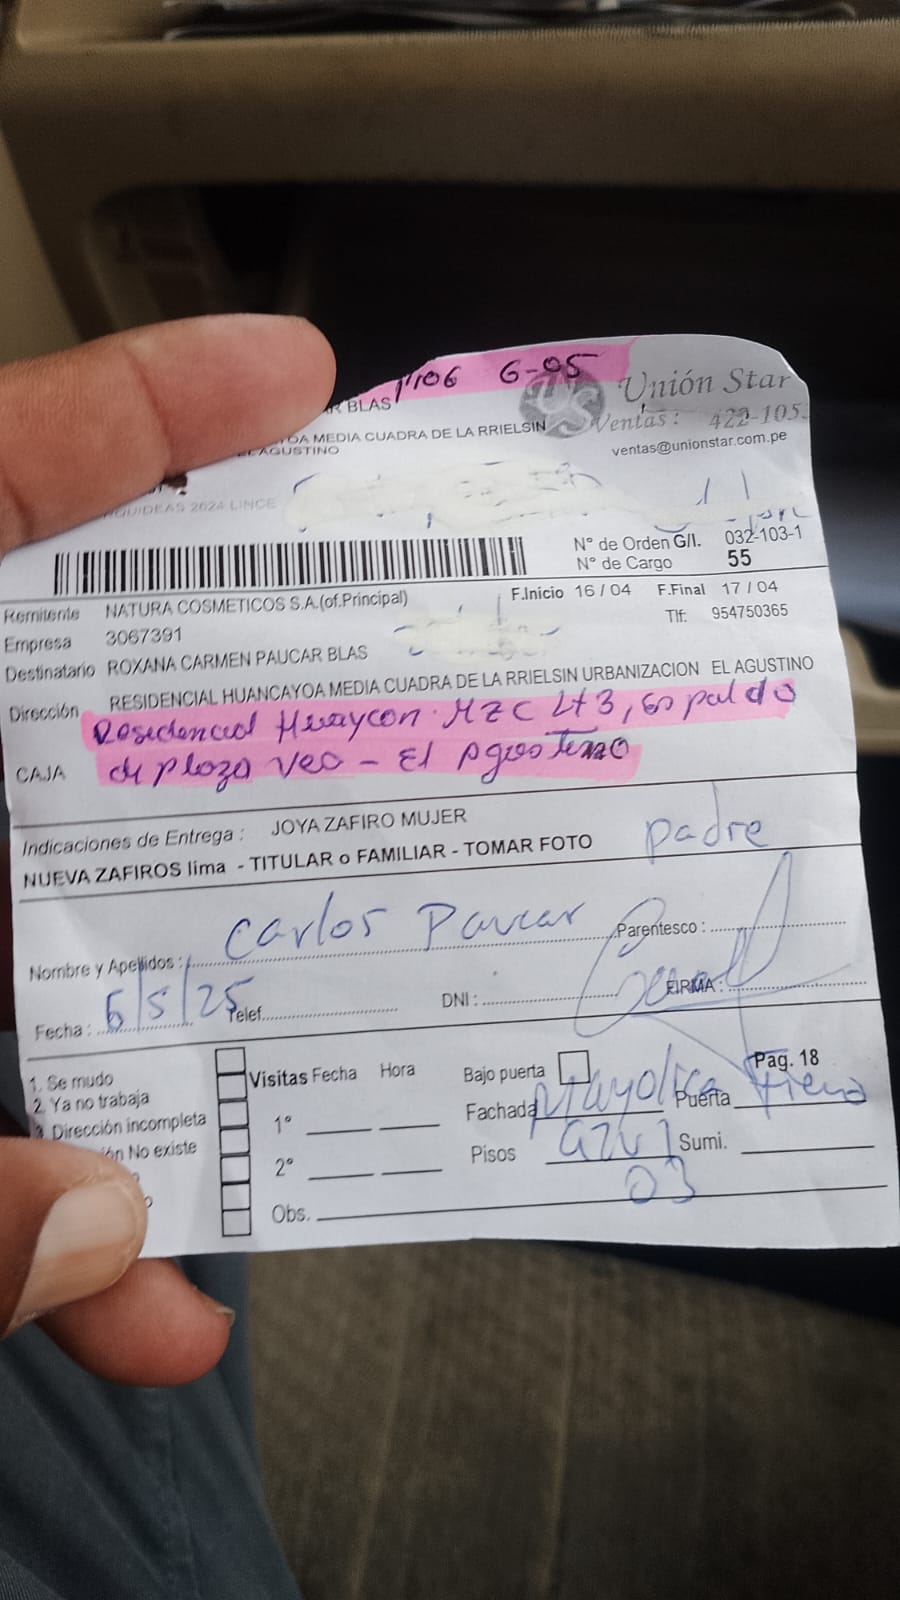 6-05
Unión Star
R BLAS
Ventas: 422-105
OA MEDIA CUADRA DE LA RRIELSIN
ventas@unionstar.com.pe
AGUSTINO
QUIDEAS 2024 LINCE
N° de Orden G/I. 032-103-1
N° de Cargo 55
Remitente NATURA COSMETICOS S.A.(of.Principal) F.Inicio 16/04 F.Final 17/04
Empresa 3067391 Tlf: 954750365
Destinatario ROXANA CARMEN PAUCAR BLAS
Dirección RESIDENCIAL HUANCAYOA MEDIA CUADRA DE LA RRIELSIN URBANIZACION EL AGUSTINO
Residencial Huaycon MZC Lt 3, espaldo
CAJA de plaza Veo - El Agostino
Indicaciones de Entrega : JOYA ZAFIRO MUJER
NUEVA ZAFIROS lima - TITULAR o FAMILIAR - TOMAR FOTO padre
Nombre y Apellidos : Carlos Paucar Parentesco :
Fecha : 6/5/25 Telef. DNI : FIRMA :
1. Se mudo
2. Ya no trabaja
3. Dirección incompleta
ón No existe
Visitas Fecha Hora Bajo puerta Pag. 18
1° Fachada Mayolica Puerta Fierro
azul
2° Pisos 03 Sumi.
Obs.